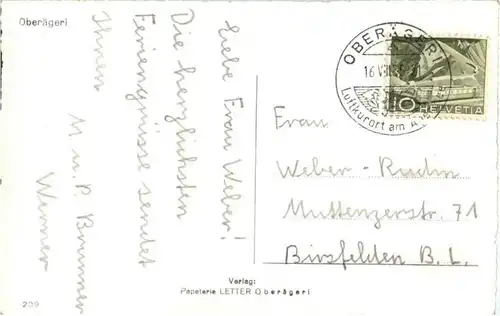 Oberägeri
Liebe Frau Weber!
Die herzlichsten
Feriengrüsse sendet
Ihnen
M u. P. Brunner
Werner
209
Verlag:
Papeterie LETTER Oberägeri
OBERÄGERI
Luftkurort am
10 HELVETIA
Frau
Weber-Rudin
Muttenzerstr. 71
Birsfelden B. L.